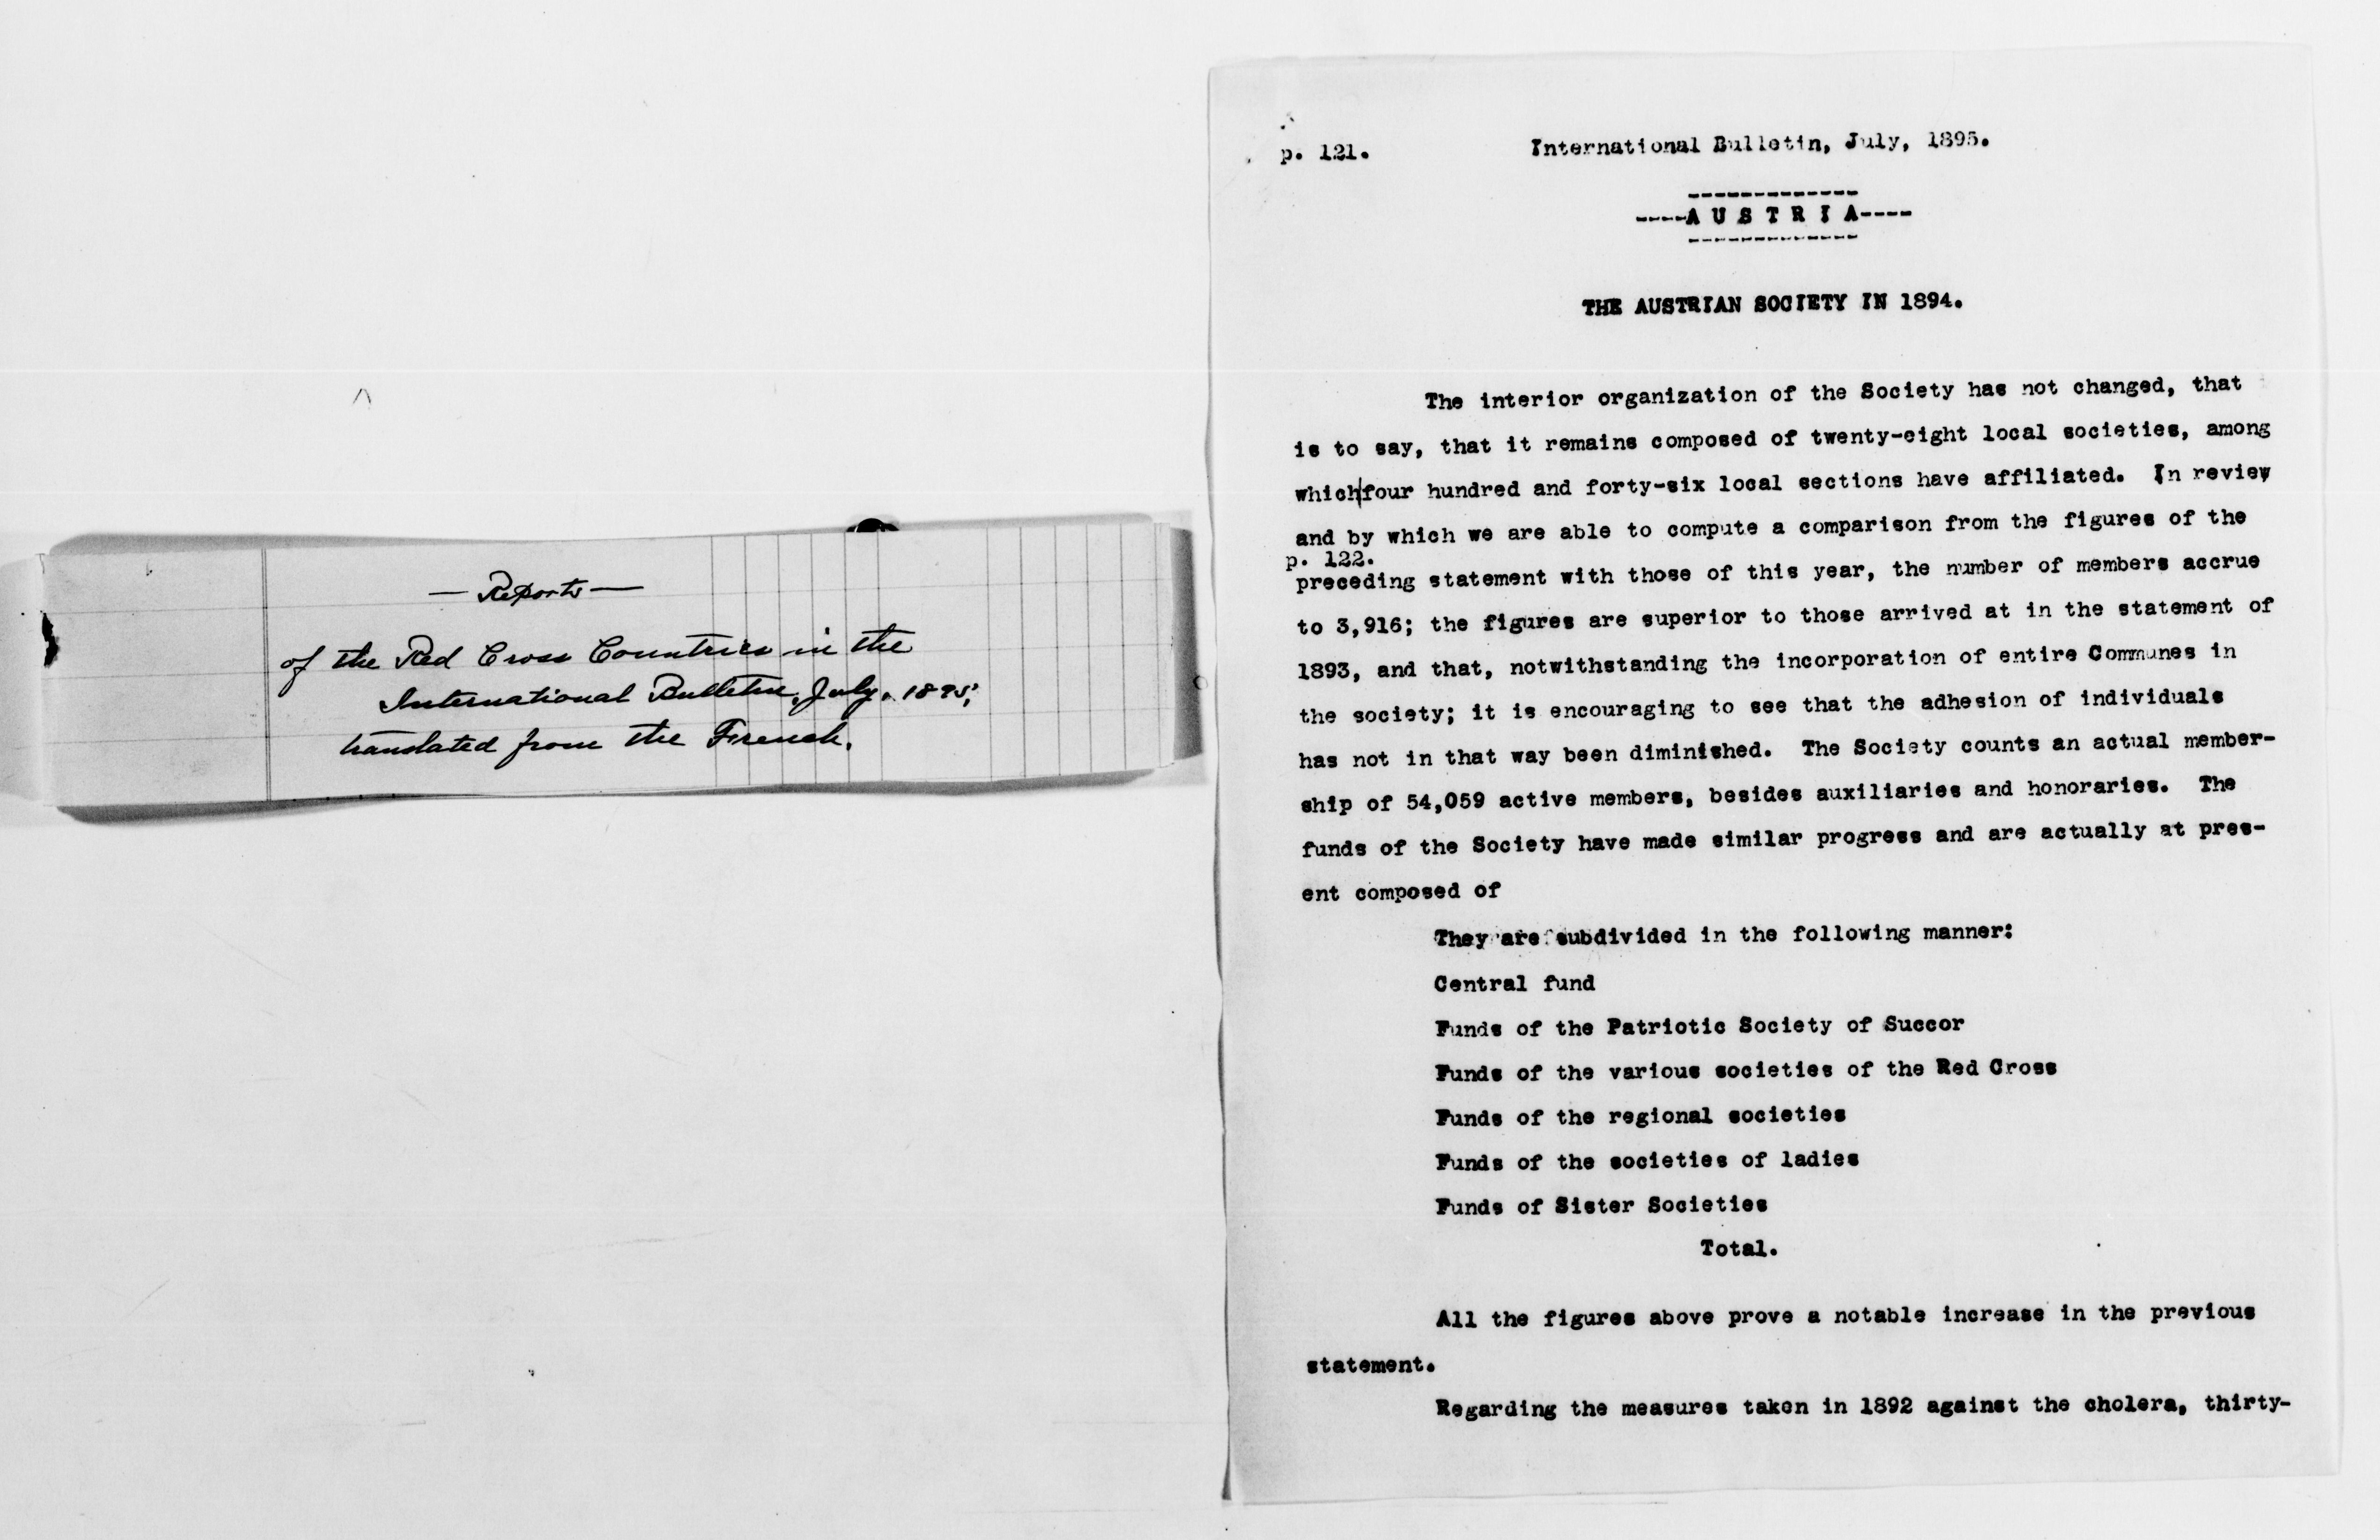 — Reports —
of the Red Cross Countries in the
International Bulletin, July, 1895;
translated from the French.
p. 121. International Bulletin, July, 1895.
-------------
----A U S T R I A----
-------------
THE AUSTRIAN SOCIETY IN 1894.
The interior organization of the Society has not changed, that
is to say, that it remains composed of twenty-eight local societies, among
which|four hundred and forty-six local sections have affiliated. In review
and by which we are able to compute a comparison from the figures of the
p. 122.
preceding statement with those of this year, the number of members accrue
to 3,916; the figures are superior to those arrived at in the statement of
1893, and that, notwithstanding the incorporation of entire Communes in
the society; it is encouraging to see that the adhesion of individuals
has not in that way been diminished. The Society counts an actual member-
ship of 54,059 active members, besides auxiliaries and honoraries. The
funds of the Society have made similar progress and are actually at pres-
ent composed of
They are subdivided in the following manner:
Central fund
Funds of the Patriotic Society of Succor
Funds of the various societies of the Red Cross
Funds of the regional societies
Funds of the societies of ladies
Funds of Sister Societies
Total.
All the figures above prove a notable increase in the previous
statement.
Regarding the measures taken in 1892 against the cholera, thirty-